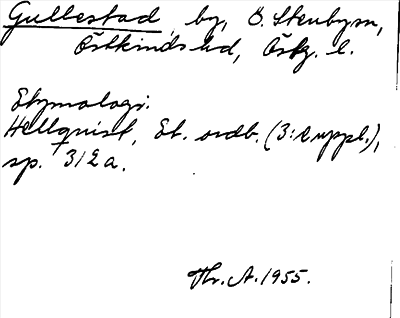 Gullestad, by, Ö. Stenbysn,
Östkinds hd, Östg. l.
Etymologi:
Hellquist, Et. ordb. (3:e uppl.),
sp. 312a.
Thr. A. 1955.